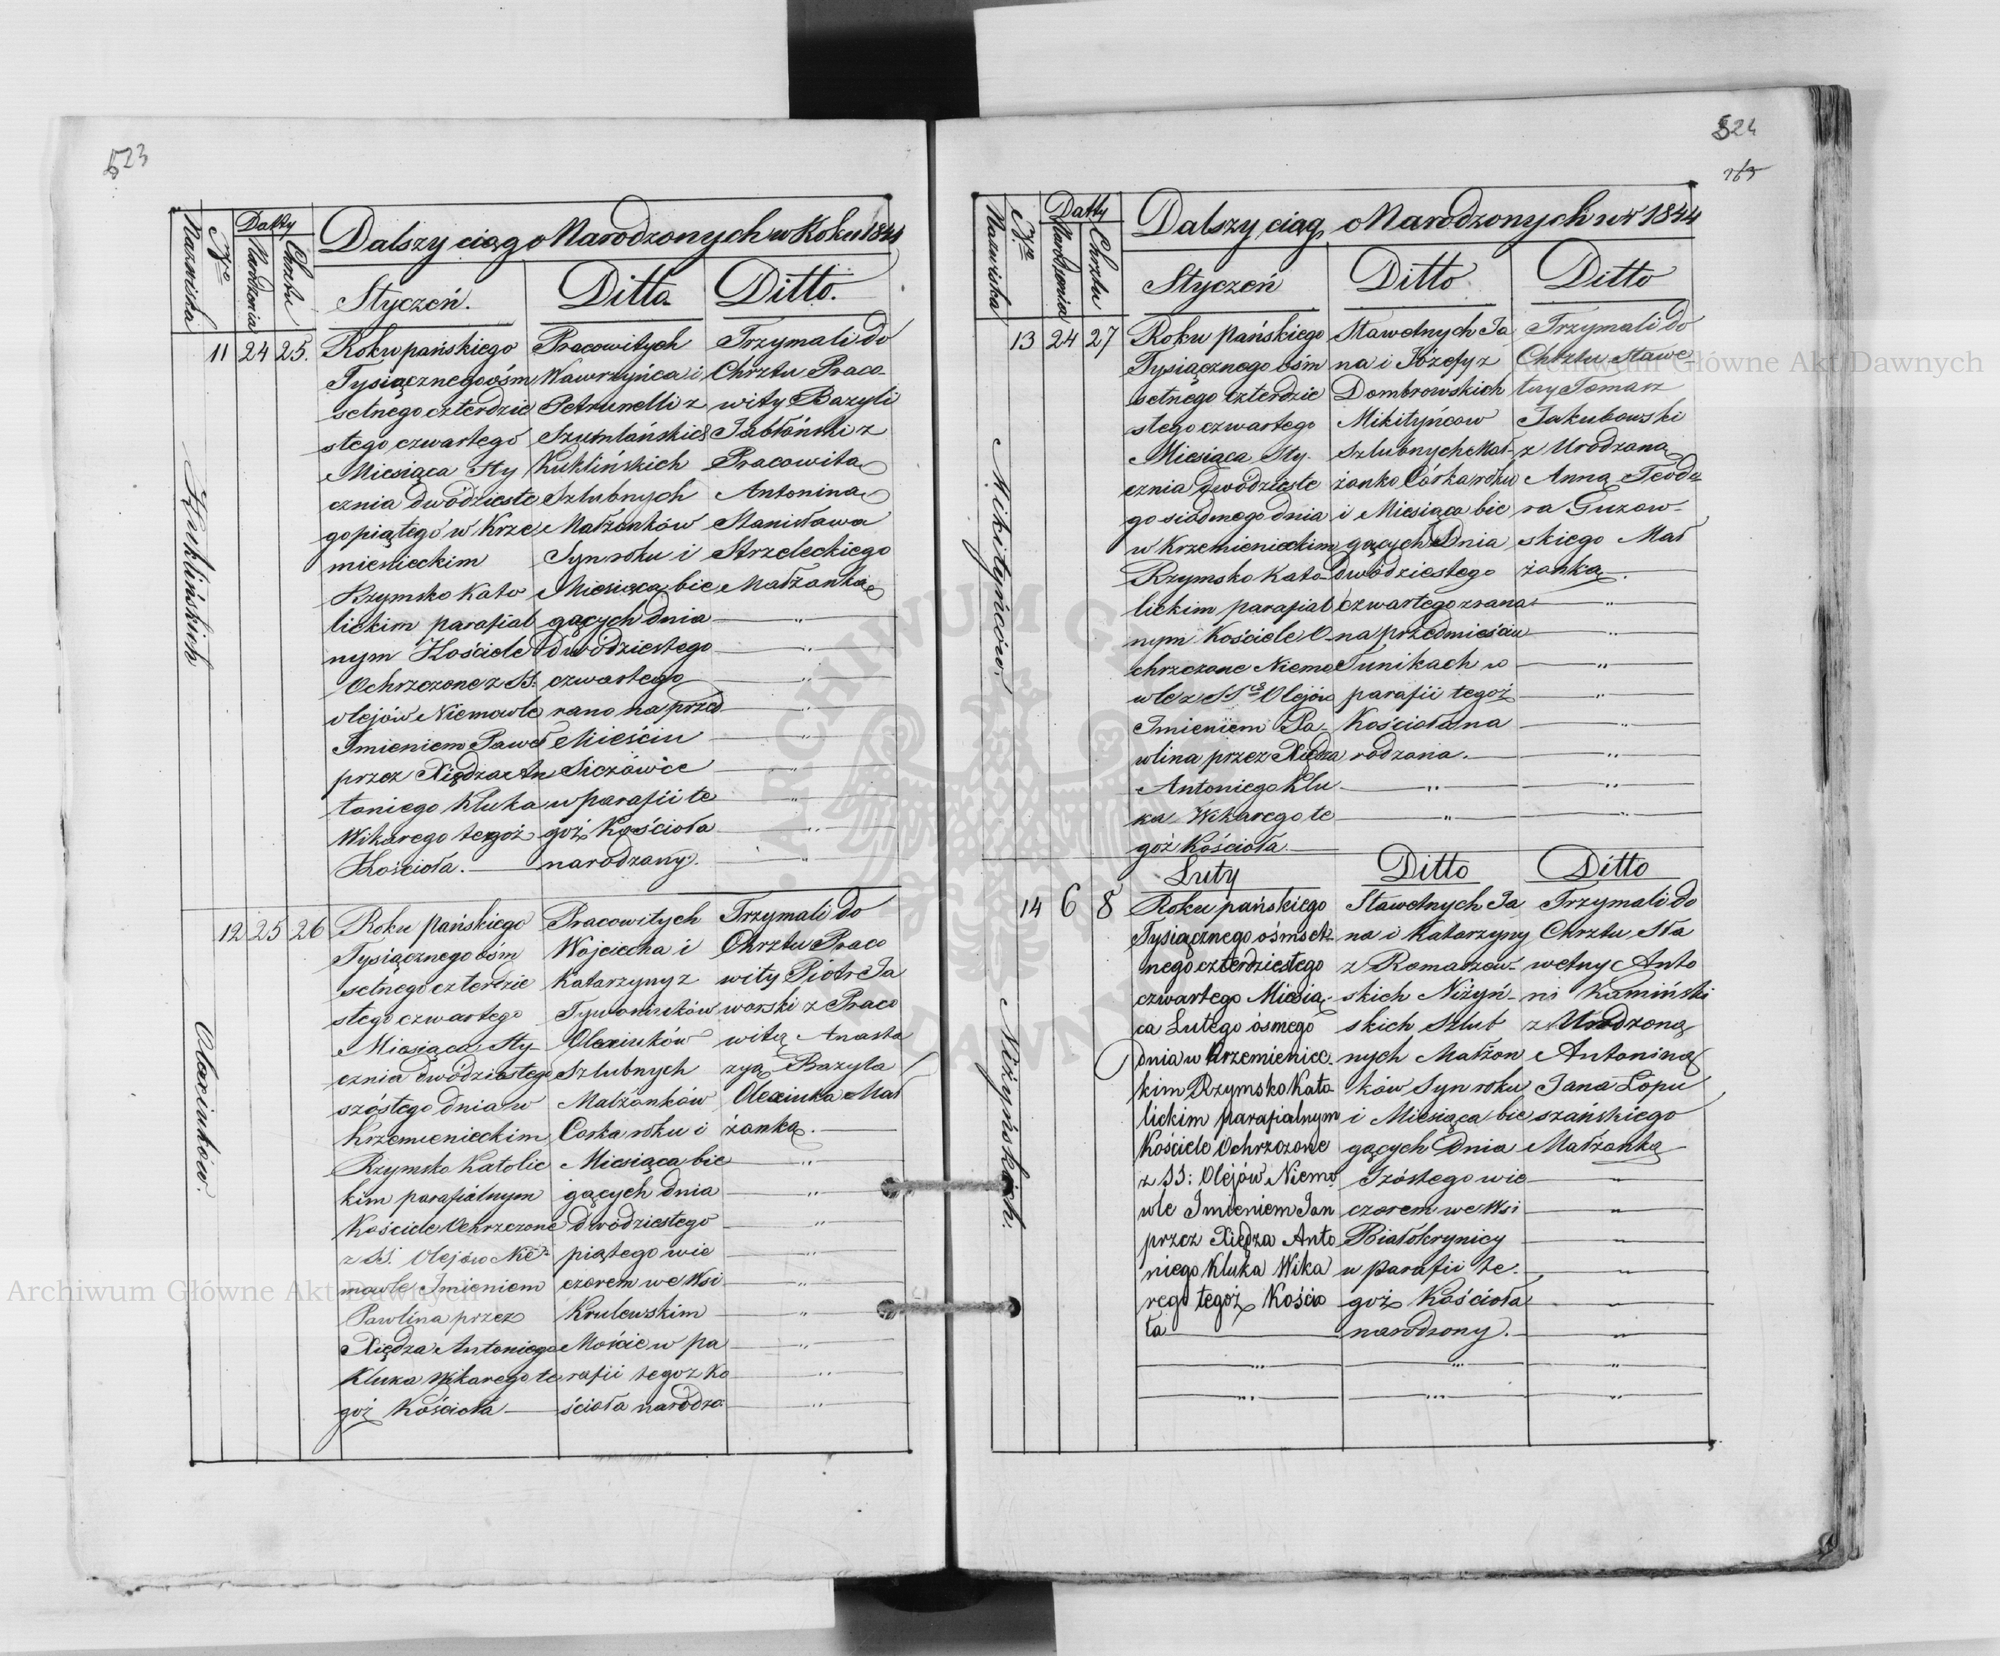 523
Dalszy ciąg o Narodzonych w Roku 1844
Nazwiska
No
Datty
Narodzenia
Chrztu
Styczeń.
Ditto
Ditto.
Kuklińskich
11 24 25.
Roku pańskiego
Tysiącznego ośm
setnego czterdzie
stego czwartego
Miesiąca Sty
cznia dwódzieste
go piątego w Krze
mienieckim
Rzymsko Kato
lickim parafial
nym Kościele
Ochrzczone z SS:
olejów Niemowle
Imieniem Paweł
przez Xiędza An
toniego Kluka
Wikarego tegoż
Kościoła.
Pracowitych
Wawrzyńca i
Petrunelli z
Szumlańskich
Kuklińskich
Szlubnych
Małżonków
Syn roku i
Miesiąca bie
gących dnia
Dwódziestego
czwartego
rano na przed
Mieściu
Siczówce
w parafii te
goż Kościoła
narodzany.
Trzymali do
Chrztu Praco
wity Bazyli
Jabłóński z
Pracowitą
Antoniną
Stanisława
Strzeleckiego
Małżonką
Olexiuków.
12 25 26
Roku pańskiego
Tysiącznego ośm
setnego czterdzie
stego czwartego
Miesiąca Sty-
cznia dwódziestego
szóstego dnia w
Krzemienieckim
Rzymsko Katolic
kim parafialnym
Kościele Ochrzczone
z SS. Olejów Nie-
mowle Imieniem
Pawlina przez
Xiędza Antoniego
Kluka Wikarego te
goż Kościoła
Pracowitych
Wojciecha i
Katarzyny z
Olexiuków
Szlubnych
Malżonków
Corka roku i
Miesiąca bie
gących dnia
dwódziestego
piątego wie
czorem we Wsi
Krulewskim
Moście w pa
rafii tegoz Ko
ścioła narodzo
Trzymali do
Chrztu Praco
wity Piotr Ja
worski z Praco
witą Anasta
zyą Bazyla
Olexiuka Mał
żanką.
524
Dalszy ciąg o Narodzonych w r 1844
Nazwiska
No
Datty
Narodzenia
Chrztu
Styczeń
Ditto
Ditto
Mikityńców.
13 24 27
Roku pańskiego
Tysiącznego ośm
setnego czterdzie
stego czwartego
Miesiąca Sty-
cznia dwódzieste
go siódmego dnia
w Krzemienieckim
Rzymsko Kato-
lickim parafial
nym Kościele O-
chrzczone Niemo
wle z SSch Olejów
Imieniem Pa-
wlina przez Xiędza
Antoniego Klu
ka Wikarego te
goż Kościoła.
Sławetnych Ja
na i Józefy z
Dombrowskich
Mikityńcow
Szlubnych Mał-
żanko Córka roku
i Miesiąca bie
gących Dnia
Dwódziestego
czwartego z rana
na przedmieściu
Tunikach w
parafii tegoż
Kościoła na
rodzona.
Trzymali do
Chrztu Sławe-
tny Tomasz
Jakubowski
z Urodzaną
Anną Teodo
ra Guzow-
skiego Mał
żanką.
Luty
Ditto
Ditto
Niżyńskich.
14 6 8
Roku pańskiego
Tysiącznego ośmset-
nego czterdziestego
czwartego Miesią-
ca Lutego ósmego
dnia w Krzemieniec-
kim Rzymsko Kato
lickim parafialnym
Kościele Ochrzczone
z SS: Olejów Niemo
wle Imieniem Jan
przez Xiędza Anto
niego Kluka Wika
rego tegoż Kościo
ła
Sławetnych Ja
na i Katarzyny
z Romaszow-
skich Niżyń-
skich Szlub
nych Małżon
ków Syn roku
i Miesiąca bie
gących Dnia
Szóstego wie
czorem we Wsi
Białokrynicy
w parafii te-
goż Kościoła
narodzony.
Trzymali do
Chrztu Sła
wetny Anto
ni Kamiński
z Urodzoną
Antoniną
Jana Łopu
szańskiego
Małżanką
Archiwum Główne Akt Dawnych
Archiwum Główne Akt Dawnych